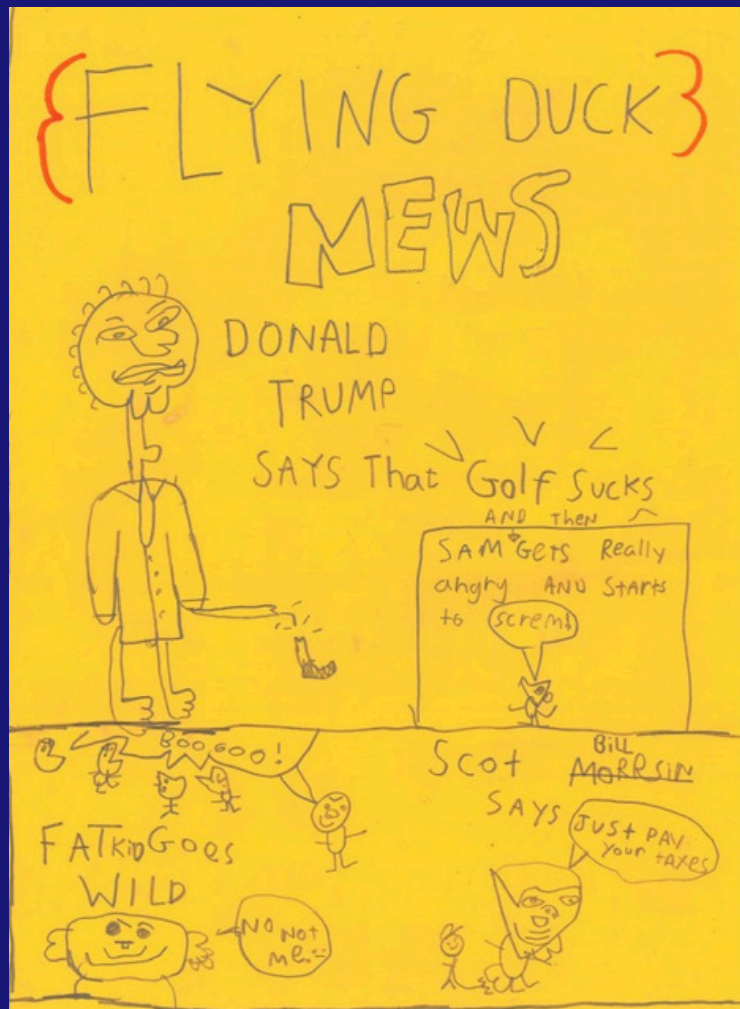 {FLYING DUCK}
NEWS
DONALD
TRUMP
SAYS That Golf Sucks
AND Then
SAM Gets Really
angry AND Starts
to screm!
BOO GOO!
FATkid Goes
WILD
NO NOT
Me.
Scot Bill
MORRSIN
SAYS
JUSt PAY
Your tAXes